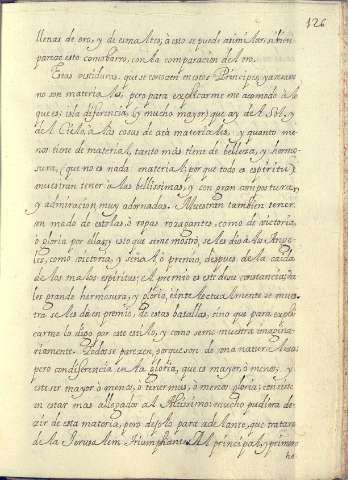 126
llenas de oro, y de esmaltes; a esto se puede asimilar, si bien
parece esto como barro, con la comparacion del oro.
Estas vestiduras, que se conocen en estos Principes, ya se ve no
no son materiales, pero para explicarme me acomodo a lo
que es; i la diferencia, (y mucho mayor) que ay del Sol, y
del Cielo, a las cosas de acà materiales, y quanto me
nos tiene de material, tanto más tiene de belleza, y hermo
sura, (que no es nada material, por que todo es espiritu)
muestran tener alas bellissimas, y con gran compostura,
y admiracion muy adornadas. Muestran tambien tener
un modo de estolas, ò ropas rozagantes, como de victoria,
ò gloria por ellas; y esto que se me mostrò, se les diò a los Ange-
les, como victoria, y señal ò premio, despues de la caida
de los malos espiritus: Al premio es esto de su constancia, ta
les grande hermosura, y gloria, el intelectualmente se mues
tra se les dà en premio, de estas batallas, sino que para expli
carme lo digo por este estilo, y como se me muestra imagina
riamente. Todos se parecen, porque son de una naturaleza:
pero con diferencia en la gloria, que es mayor, ò menos, y
este ser mayor ò menor, ò tener mas, ò menor gloria: consiste
en estar mas allegados al Altissimo: mucho pudiera de
zir de esta materia, pero dejolo para adelante, que tratarè
de la Jerusalem triumphante. Al principal, y primero
he